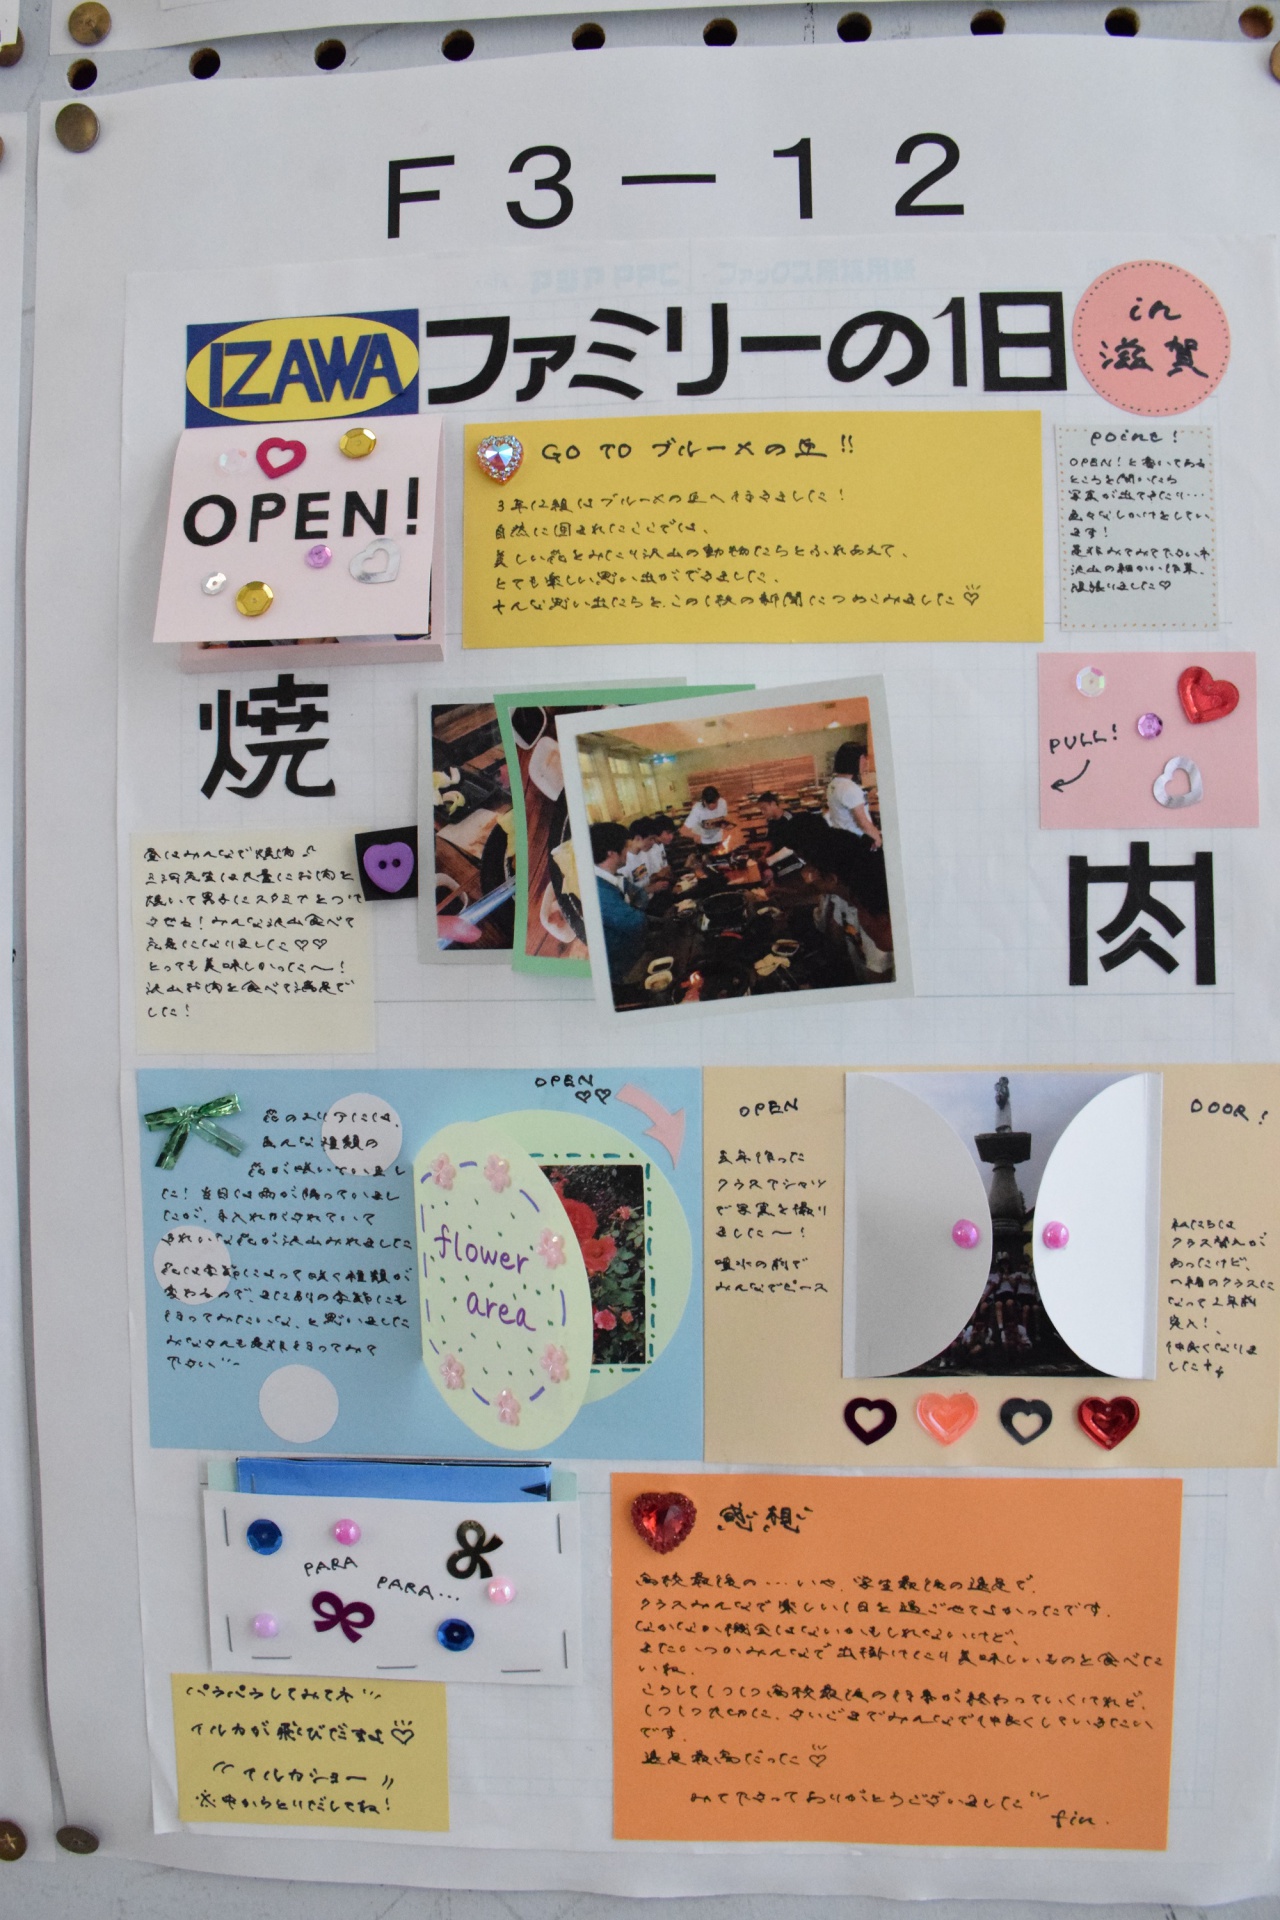 F3-12
IZAWA ファミリーの1日
in
滋賀
OPEN!
GO TO ブルーメの丘!!
3年12組はブルーメの丘へ行きました!
自然に囲まれたここでは、
美しい花をみたり沢山の動物たちとふれあえて、
とても楽しい思い出ができました。
そんな思い出たちを、この1枚の新聞につめこみました♡
point!
OPEN!と書いてある
ところを開いたら
写真が出てきたり…
色々なしかけをしてい
ます!
是非みてみて下さいね
沢山の細かい作業、
頑張りました♡
PULL!
焼
肉
昼はみんなで焼肉♪
先生は大量にお肉を
焼いて男子にスタミナをつけ
させる!みんな沢山食べて
元気になりました♡♡
とっても美味しかった〜!
沢山お肉を食べて満足で
した!
OPEN
♡♡
花のエリアには、
色んな種類の
花が咲いていまし
た!当日は雨が降っていまし
たが、手入れがされていて
きれいな花が沢山みれました
花は季節によって咲く種類が
変わるので、また別の季節にも
行ってみたいな、と思いました
みなさんも是非行ってみて
下さい
flower
area
OPEN
去年作った
クラスTシャツ
で写真を撮り
ました〜!
噴水の前で
みんなでピース
DOOR!
私たちは
クラス替えが
あったけど、
一緒のクラスに
なって2年目
突入!
仲良くなりま
した
PARA
PARA...
パラパラしてみてネ
イルカが飛びだすよ♡
"イルカショー"
※中からとりだしてね!
感想
高校最後の…いや、学生最後の遠足で、
クラスみんなで楽しい1日を過ごせてよかったです。
なかなか機会はないかもしれないけど、
またいつかみんなで出掛けたり美味しいものを食べた
いね。
こうして1つ1つ高校最後の行事が終わっていくけれど、
1つ1つ大切に、さいごまでみんなで仲良くしていきたい
です。
遠足最高だった♡
みて下さってありがとうございました
fin.